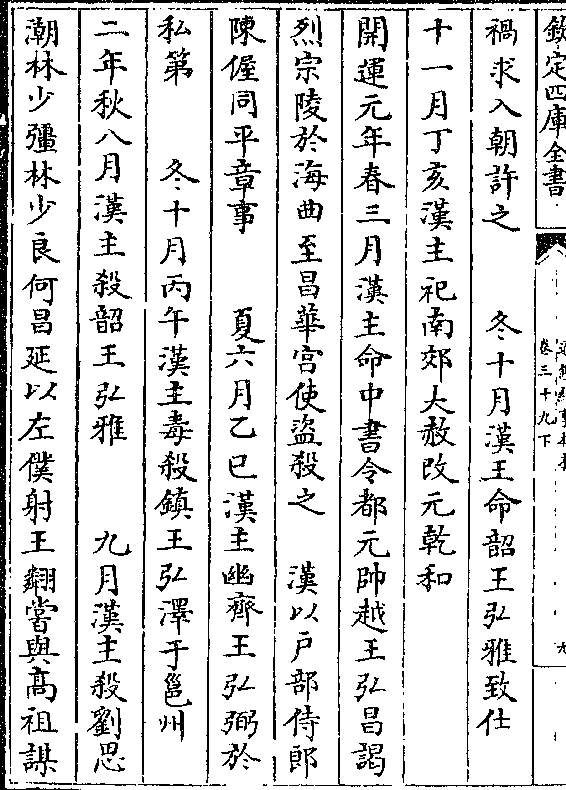 欽定四庫全書
卷三十九下
九
禍求入朝許之　　冬十月漢王命韶王弘雅致仕
十一月丁亥漢主祀南郊大赦改元乾和
開運元年春三月漢主命中書令都元帥越王弘昌謁
烈宗陵於海曲至昌華宫使盜殺之　　漢以戶部侍郎
陳偓同平章事　　夏六月乙巳漢主幽齊王弘弼於
私第　　冬十月丙午漢主毒殺鎮王弘澤于邕州
二年秋八月漢主殺韶王弘雅　　九月漢主殺劉思
潮林少彊林少良何昌延以左僕射王翷嘗與髙祖謀